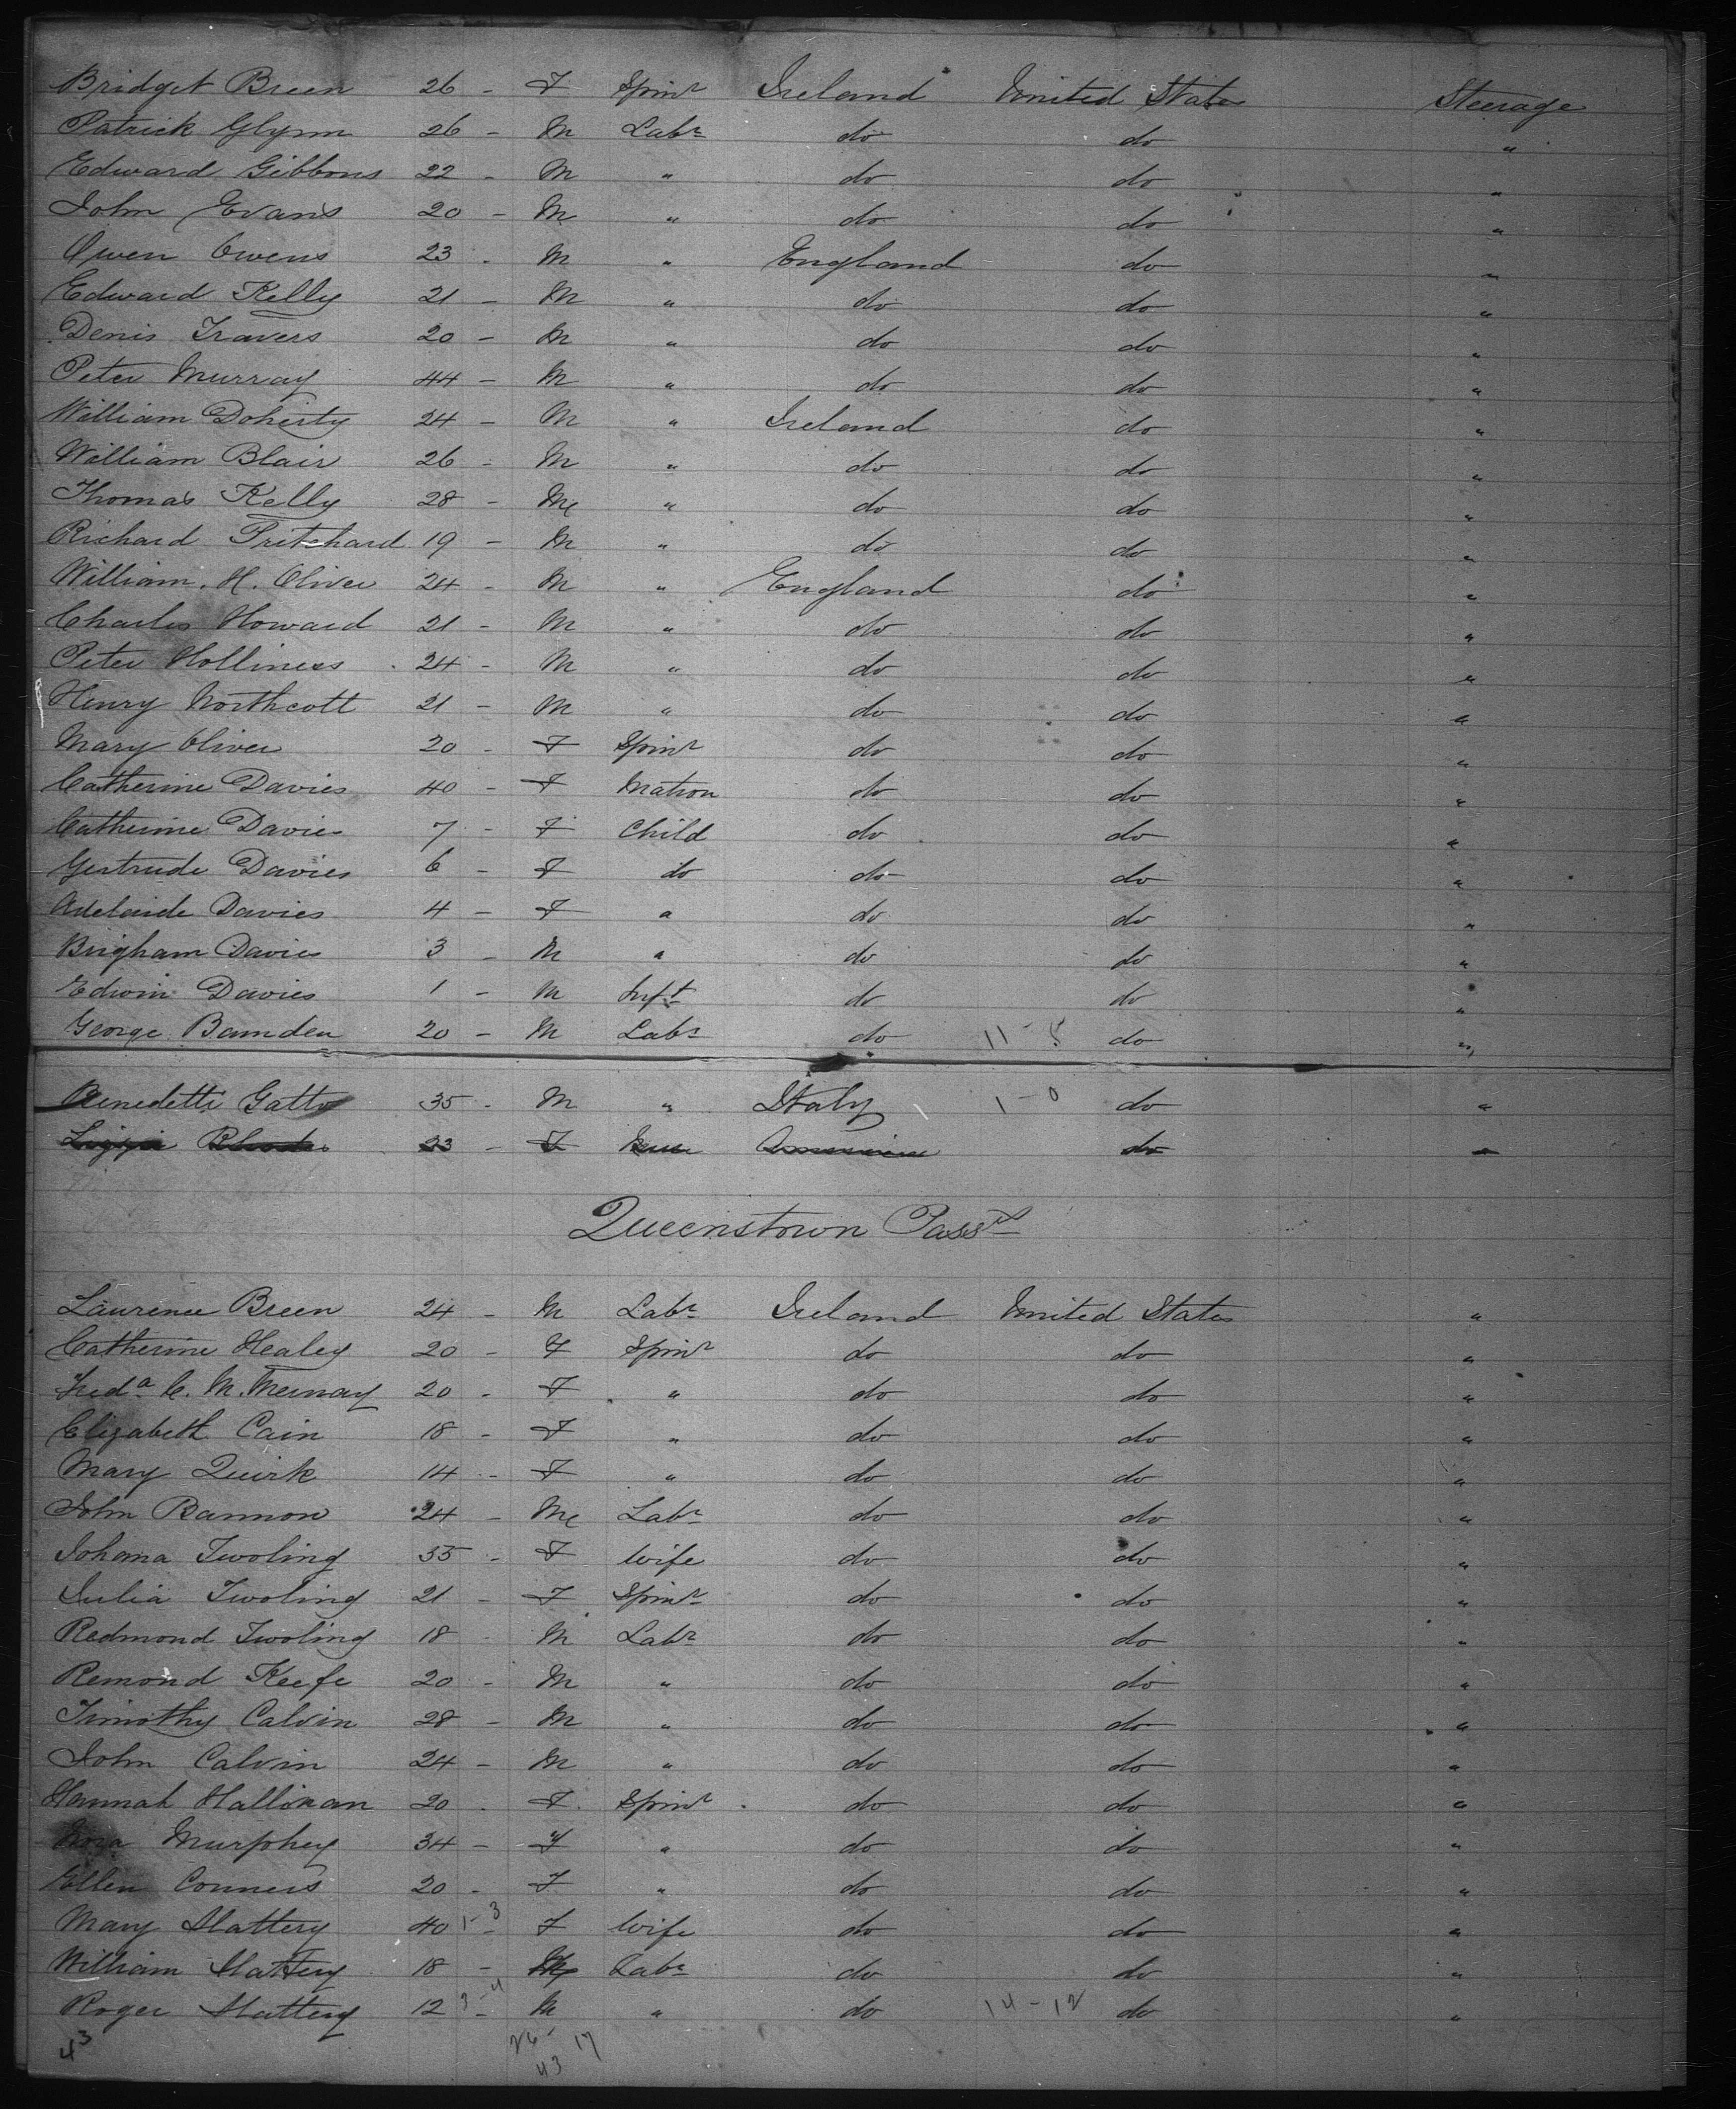 Bridget Breen 26 - F Spinr Ireland United States Steerage
Patrick Glynn 26 - M Labr do do "
Edward Gibbons 22 - M " do do "
John Evans 20 - M " do do "
Owen Owens 23 - M " England do "
Edward Kelly 21 - M " do do "
Denis Travers 20 - M " do do "
Peter Murray 44 - M " do do "
William Doherty 24 - M " Ireland do "
William Blair 26 - M " do do "
Thomas Kelly 28 - M " do do "
Richard Pritchard 19 - M " do do "
William. H. Oliver 24 - M " England do "
Charles Howard 21 - M " do do "
Peter Holliness 24 - M " do do "
Henry Northcott 21 - M " do do "
Mary Oliver 20 - F Spinr do do "
Catherine Davies 40 - F Matron do do "
Catherine Davies 7 - F Child do do "
Gertrude Davies 6 - F do do do "
Adelaide Davies 4 - F " do do "
Brigham Davies 3 - M " do do "
Edwin Davies 1 - M Inft do do "
George Bamden 20 - M Labr do 11 - 5 do "
Benedetti Gatto 35 - M " Italy 1 - 0 do "
Lizzie 23 - F do "
Queenstown Passrs
Laurence Breen 24 - M Labr Ireland United States "
Catherine Healey 20 - F Spinr do do "
C. M. 20 - F " do do "
Elizabeth Cain 18 - F " do do "
Mary Quirk 14 - F " do do "
John Bannon 24 - M Labr do do "
Johana Twoling 35 - F Wife do do "
Julia Twoling 21 - F Spinr do do "
Redmond Twoling 18 - M Labr do do "
Remond Keefe 20 - M " do do "
Timothy Calvin 28 - M " do do "
John Calvin 24 - M " do do "
Hannah Hallinan 20 - F Spinr do do "
Nora Murphey 34 - F " do do "
Ellen Conners 20 - F " do do "
Mary Slattery 40 1 - 3 F Wife do do "
William Slattery 18 - M Labr do do "
Roger Slattery 12 3 - 4 M " do 14 - 12 do "
43 26 - 17
43